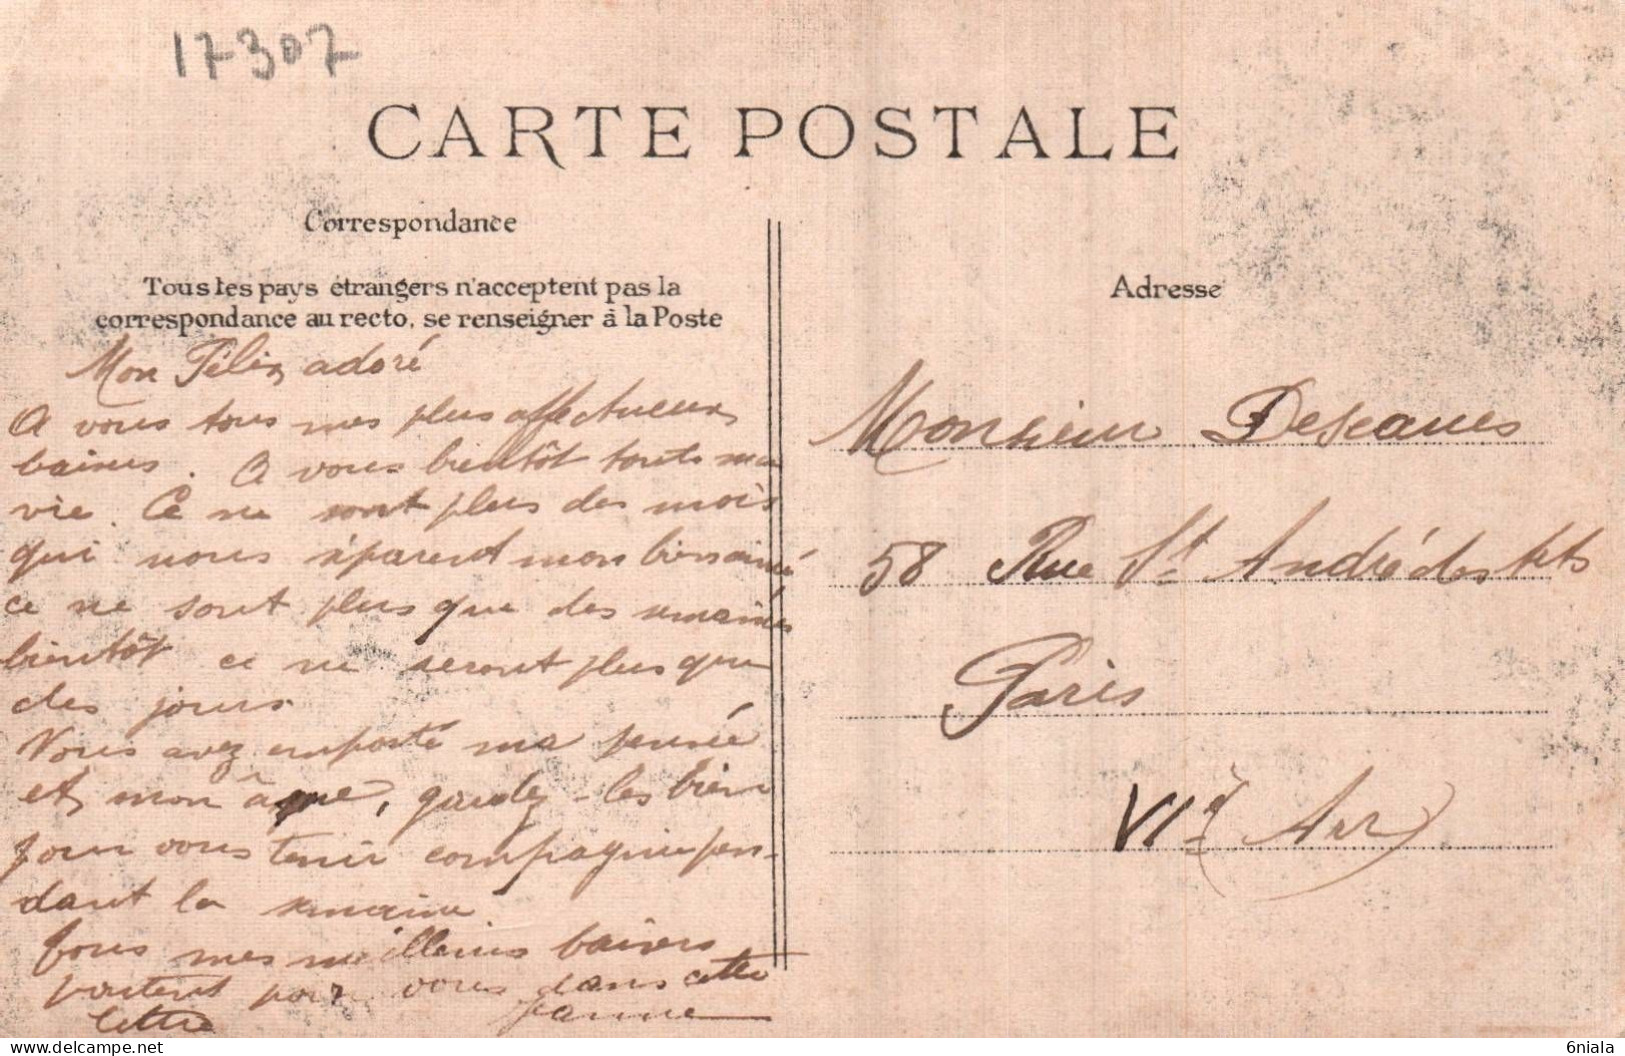 17307
CARTE POSTALE
Correspondance
Tous les pays étrangers n'acceptent pas la
correspondance au recto, se renseigner à la Poste
Mon Félix adoré
A vous tous mes plus affectueux
baisers. A vous bientôt toute ma
vie. Ce ne sont plus des mois
qui nous séparent mon bien aimé
ce ne sont plus que des semaines
bientôt ce ne seront plus que
des jours.
Vous avez emporté ma pensée
et mon âme, gardez-les bien
pour vous tenir compagnie pen-
dant la semaine
Tous mes meilleurs baisers
partent pour vous dans cette
lettre Jeanne
Adresse
Monsieur
58 Rue St André des Arts
Paris
VIe (Arr)
delcampe.net
6niala